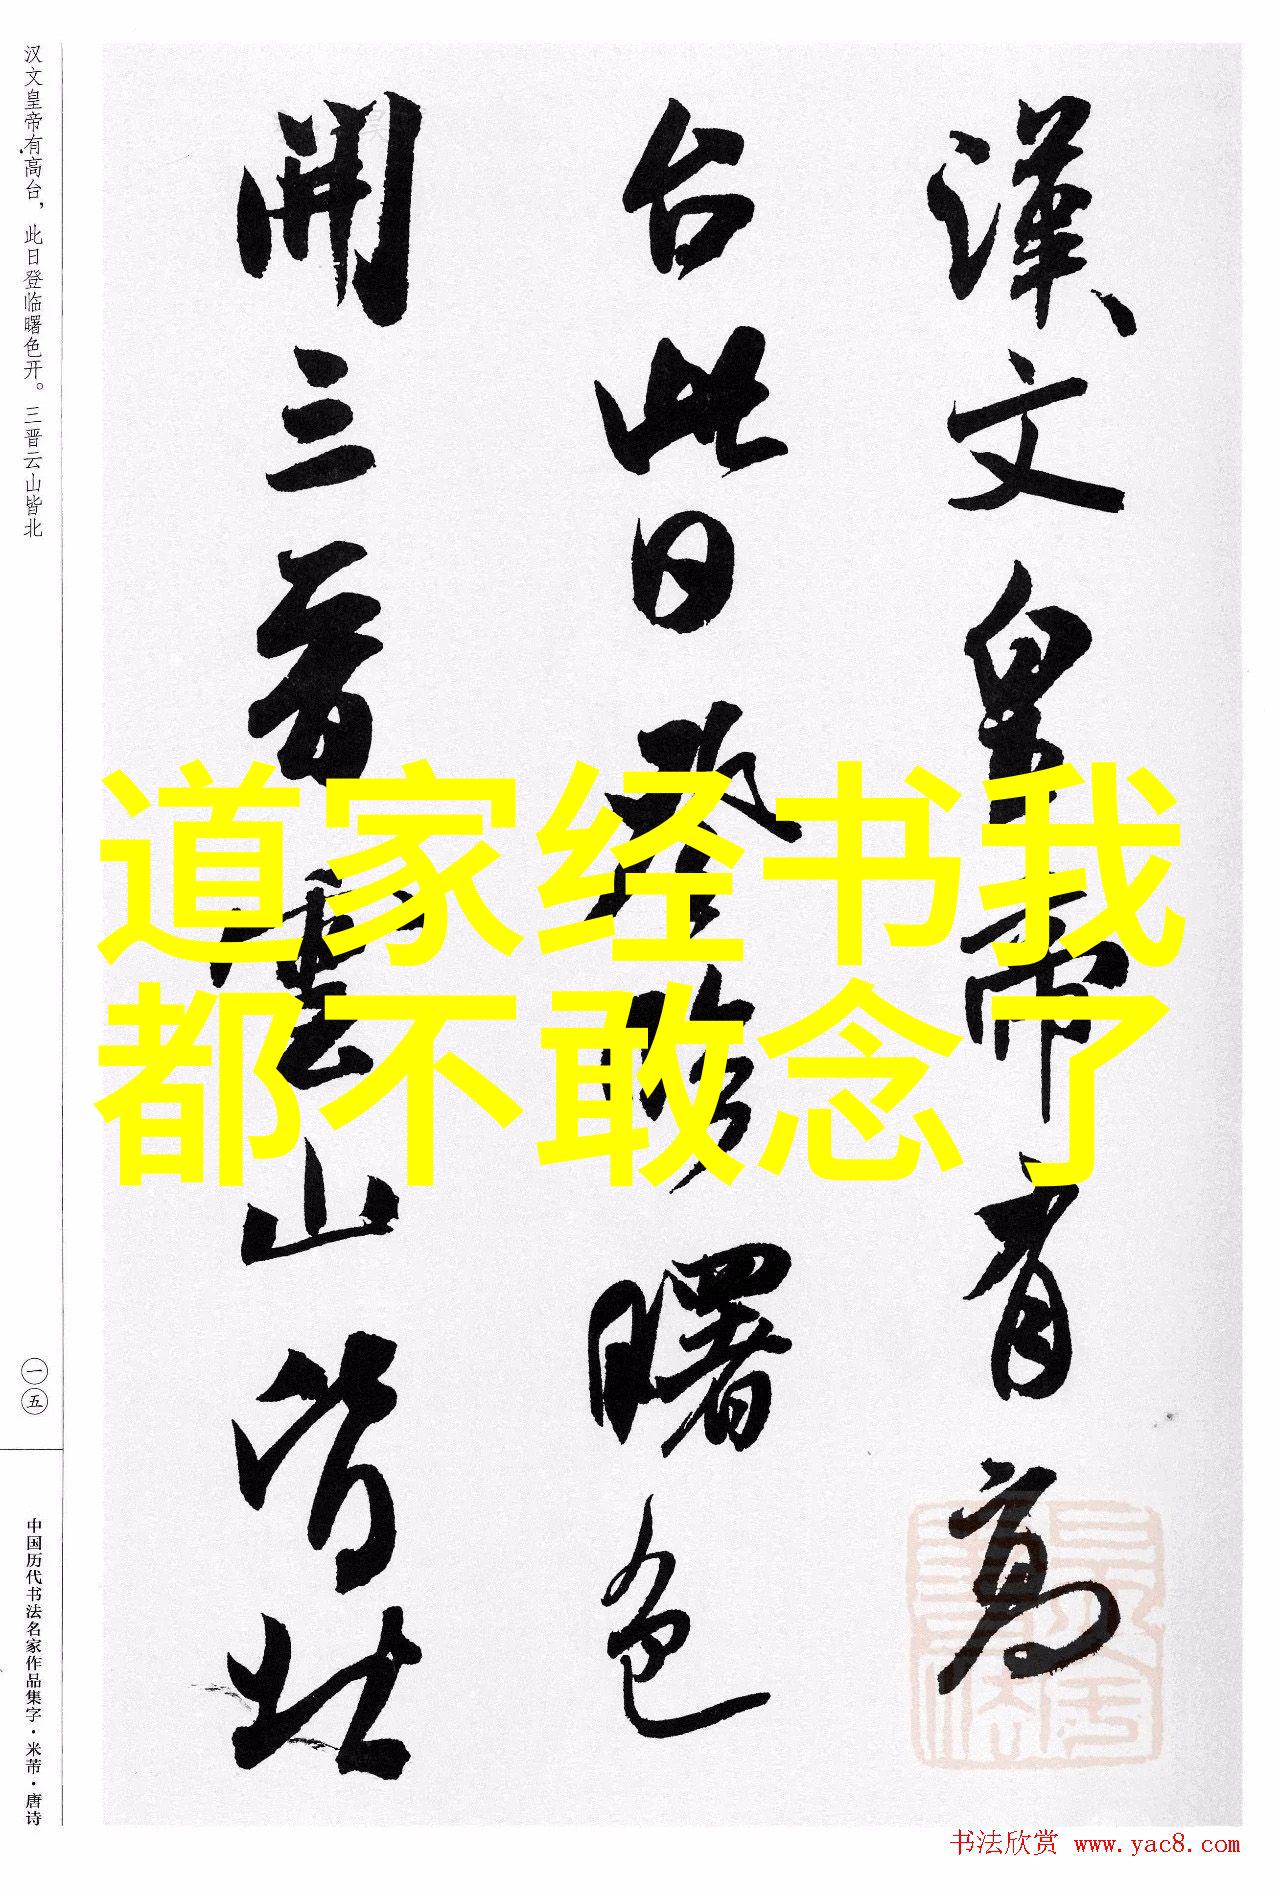 漢文皇帝有高
台此日登臨曙色
開三晉雲山皆北
道家经书我
都不敢念了
汉文皇帝有高台，此日登临曙色开。三晋云山皆北
一五
中国历代书法名家作品集字·米芾·唐诗
书法欣赏 www.yac8.com